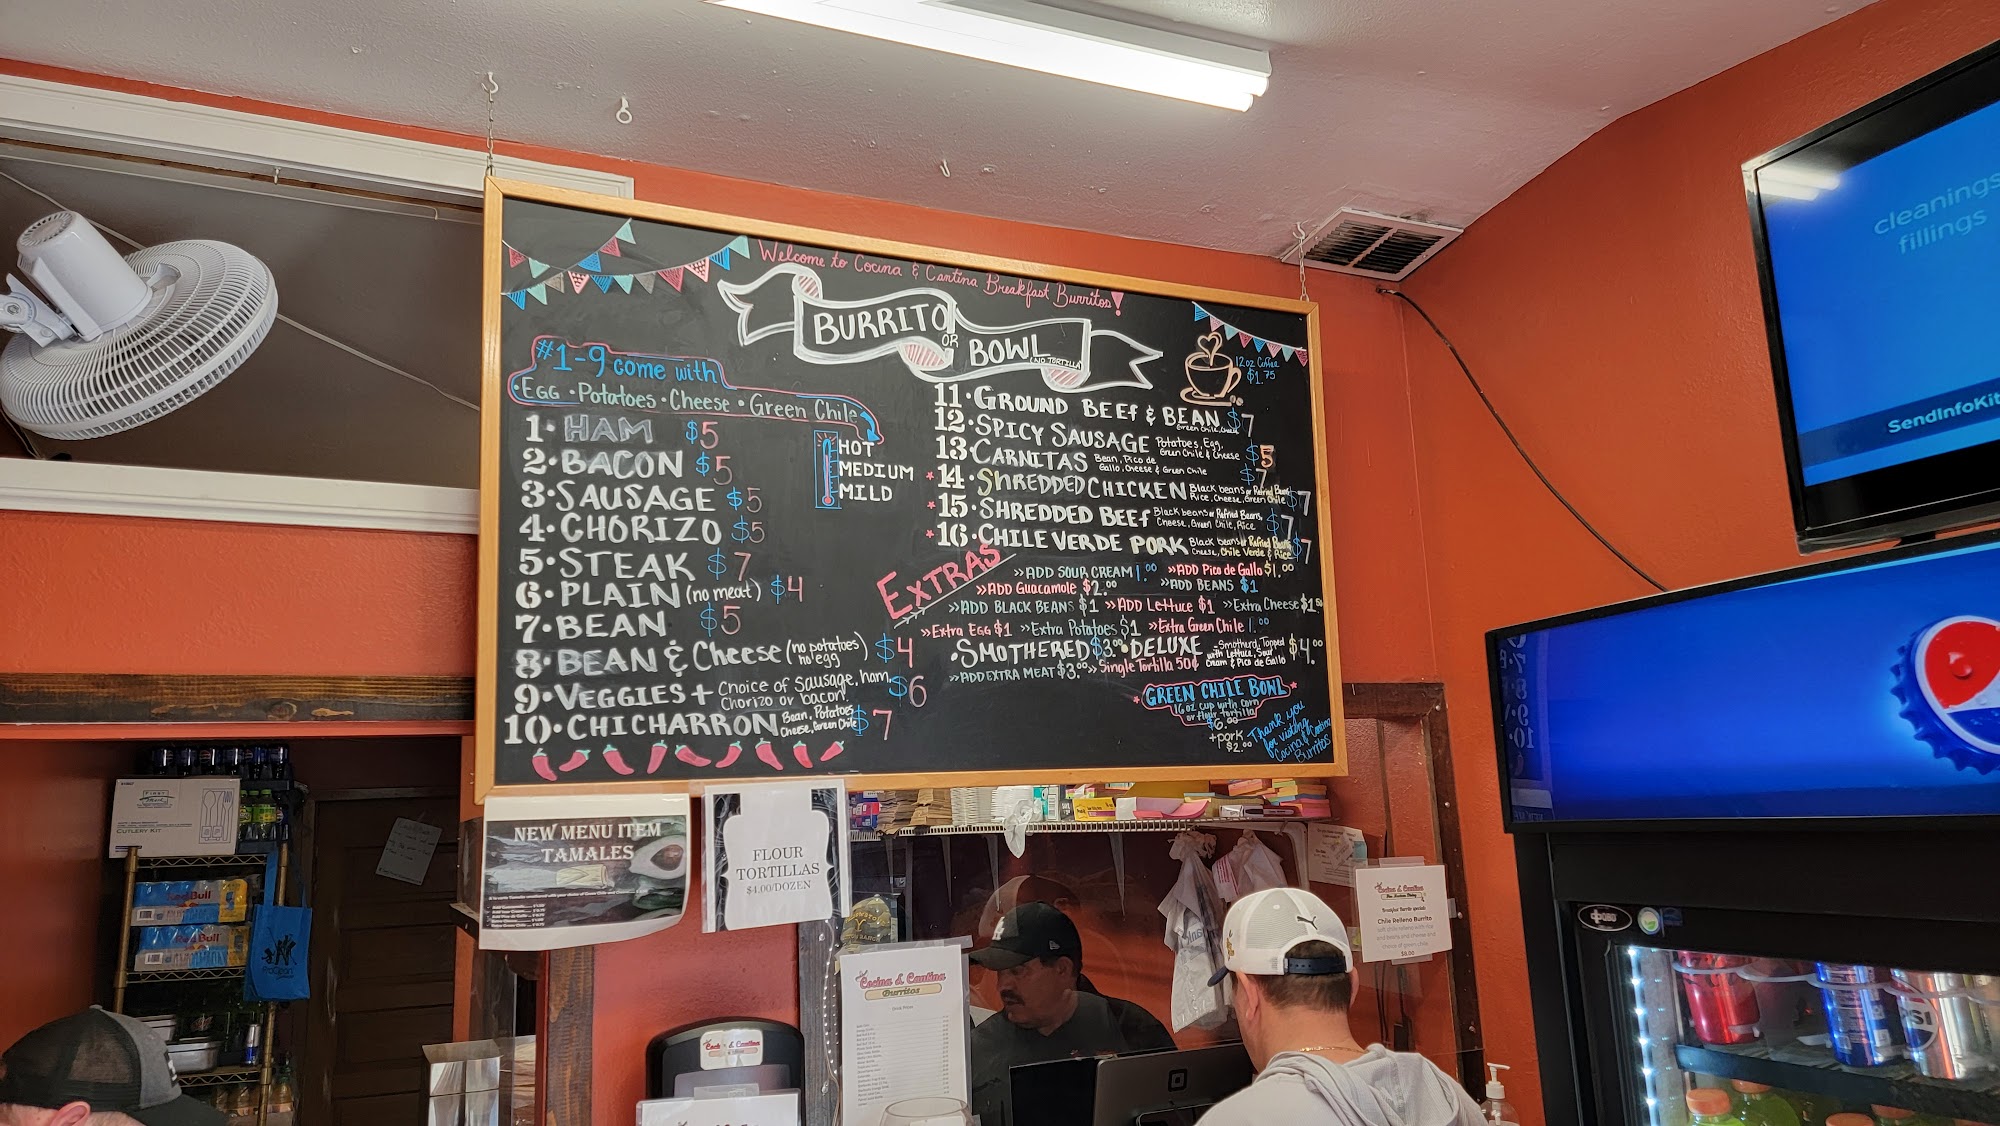 Welcome to Cocina & Cantina Breakfast Burritos!
BURRITO
OR
BOWL
(NO TORTILLA)
12oz Coffee
$1.75
#1-9 come with
•EGG •Potatoes •Cheese •Green Chile
HOT
MEDIUM
MILD
1• HAM $5
2• BACON $5
3• SAUSAGE $5
4• CHORIZO $5
5• STEAK $7
6• PLAIN (no meat) $4
7• BEAN $5
8• BEAN & Cheese (no potatoes) $4
no egg
9• VEGGIES + Choice of Sausage, ham, $6
Chorizo or bacon
10• CHICHARRON Bean, Potatoes $7
Cheese, Green Chile
11• GROUND BEEf & BEAN $7
Green Chile, Cheese
12• SPICY SAUSAGE Potatoes, Egg, $5
Green Chile & Cheese
13• CARNITAS Bean, Pico de $7
Gallo, Cheese & Green Chile
14• ShREDDED CHICKEN Black beans or Refried Beans $7
Rice, Cheese, Green Chile
15• SHREDDED BEEf Black beans or Refried Beans, $7
Cheese, Green Chile, Rice
16• CHILE VERDE PORK Black beans or Refried Beans $7
Cheese, Chile Verde & Rice
EXTRAS
»ADD SOUR CREAM 1.00 »ADD Pico de Gallo $1.00
»ADD Guacamole $2.00 »ADD BEANS $1
»ADD BLACK BEANS $1 »ADD Lettuce $1 »Extra Cheese $1.50
»Extra EGG $1 »Extra Potatoes $1 »Extra Green Chile 1.00
•SMOTHERED $3.00 •DELUXE Smotherd, Topped $4.00
with Lettuce, Sour
Cream & Pico de Gallo
»ADD EXTRA MEAT $3.00 »Single Tortilla 50¢
GREEN CHILE BOWL
16oz cup with corn
or flour tortilla
$6.00
+pork
$2.00
Thank you
for visiting
Cocina & Cantina
Burritos
NEW MENU ITEM
TAMALES
FLOUR
TORTILLAS
$4.00/DOZEN
Cocina & Cantina
Burritos
Drink Prices
Cocina & Cantina
Breakfast Burrito special:
Chile Relleno Burrito
cleanings
fillings
SendInfoKit
FIRST
CUTLERY KIT
Red Bull
Red Bull
LA